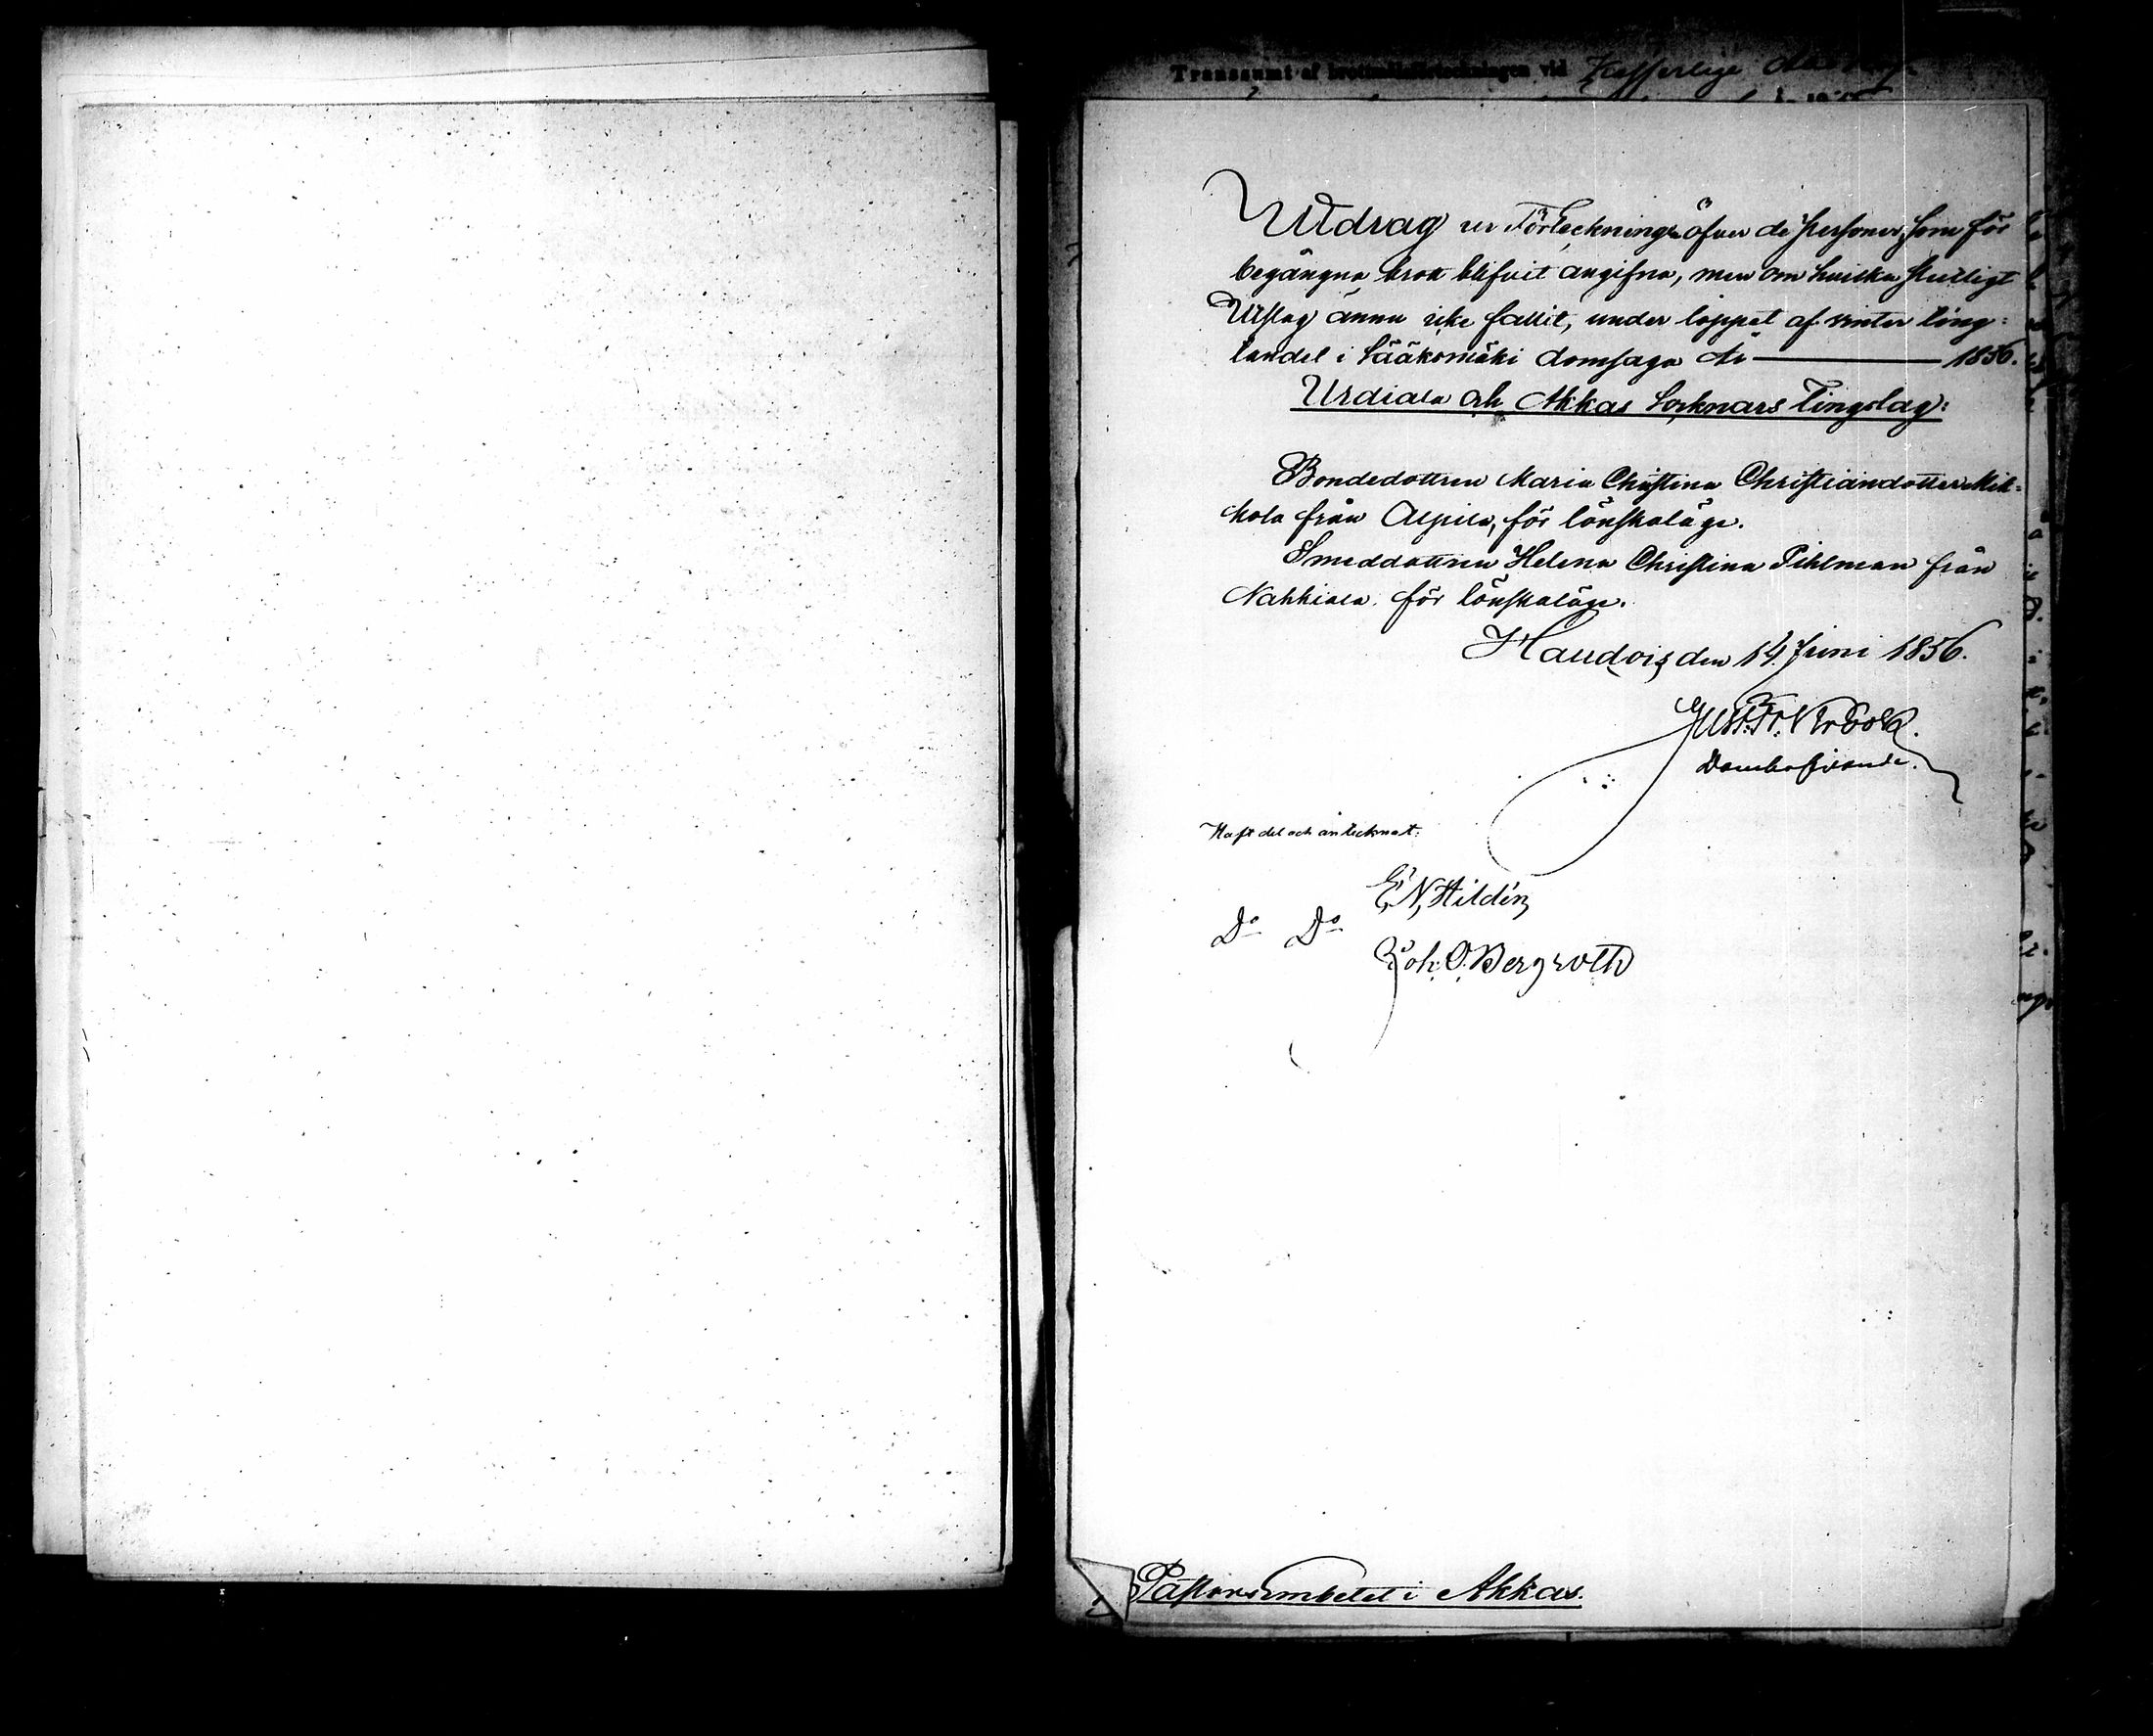 Transsumt af brottmålsförteckningen vid Kejserlige
Utdrag ur Förteckningen öfver de personer, som för
begångna brott blifvit angifna, men om hvilka slutligt
Utslag ännu icke fallit, under loppet af vinter ting:
landet i Sääksmäki domsaga År ——— 1856.
Urdiala och Akkas Socknars Tingslag:
Bondedottren Maria Christina Christiansdotter Mik=
kola från Alpila, för lönskaläge.
Smeddottren Helena Christina Pihlman från
Nahkiala för lönskaläge.
Haudois den 14 Juni 1856.
Gust. Fr.
Domhafvande.
Haft del och antecknat:
E, N, Hildén
Do Do
Joh. O. Bergroth
Pastorsembetet i Akkas.